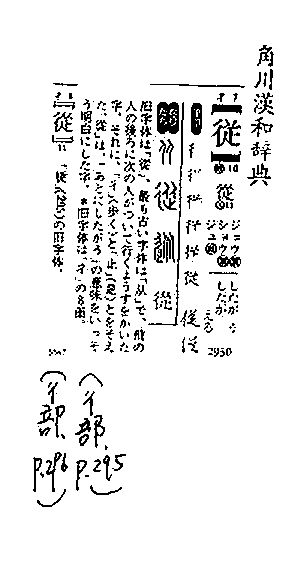 角川漢和辞典
【従】
10
從
ジュウ
ショウ
ジュ
したがう
したがえる
2950
从 從 從
旧字体は「從」。最も古い字体は「从」で、前の
人の後ろに次の人がついて行くようすをかいた
字。それに、「彳」(歩く)と、「止」(足)とをそえ
た「從」は、「あとにしたがう」の意味をいっそ
う明白にした字。
旧字体は、「彳」の8画。
【從】
11
「従」(2950)の旧字体。
(彳部、
P.295)
(彳部、
P.296)